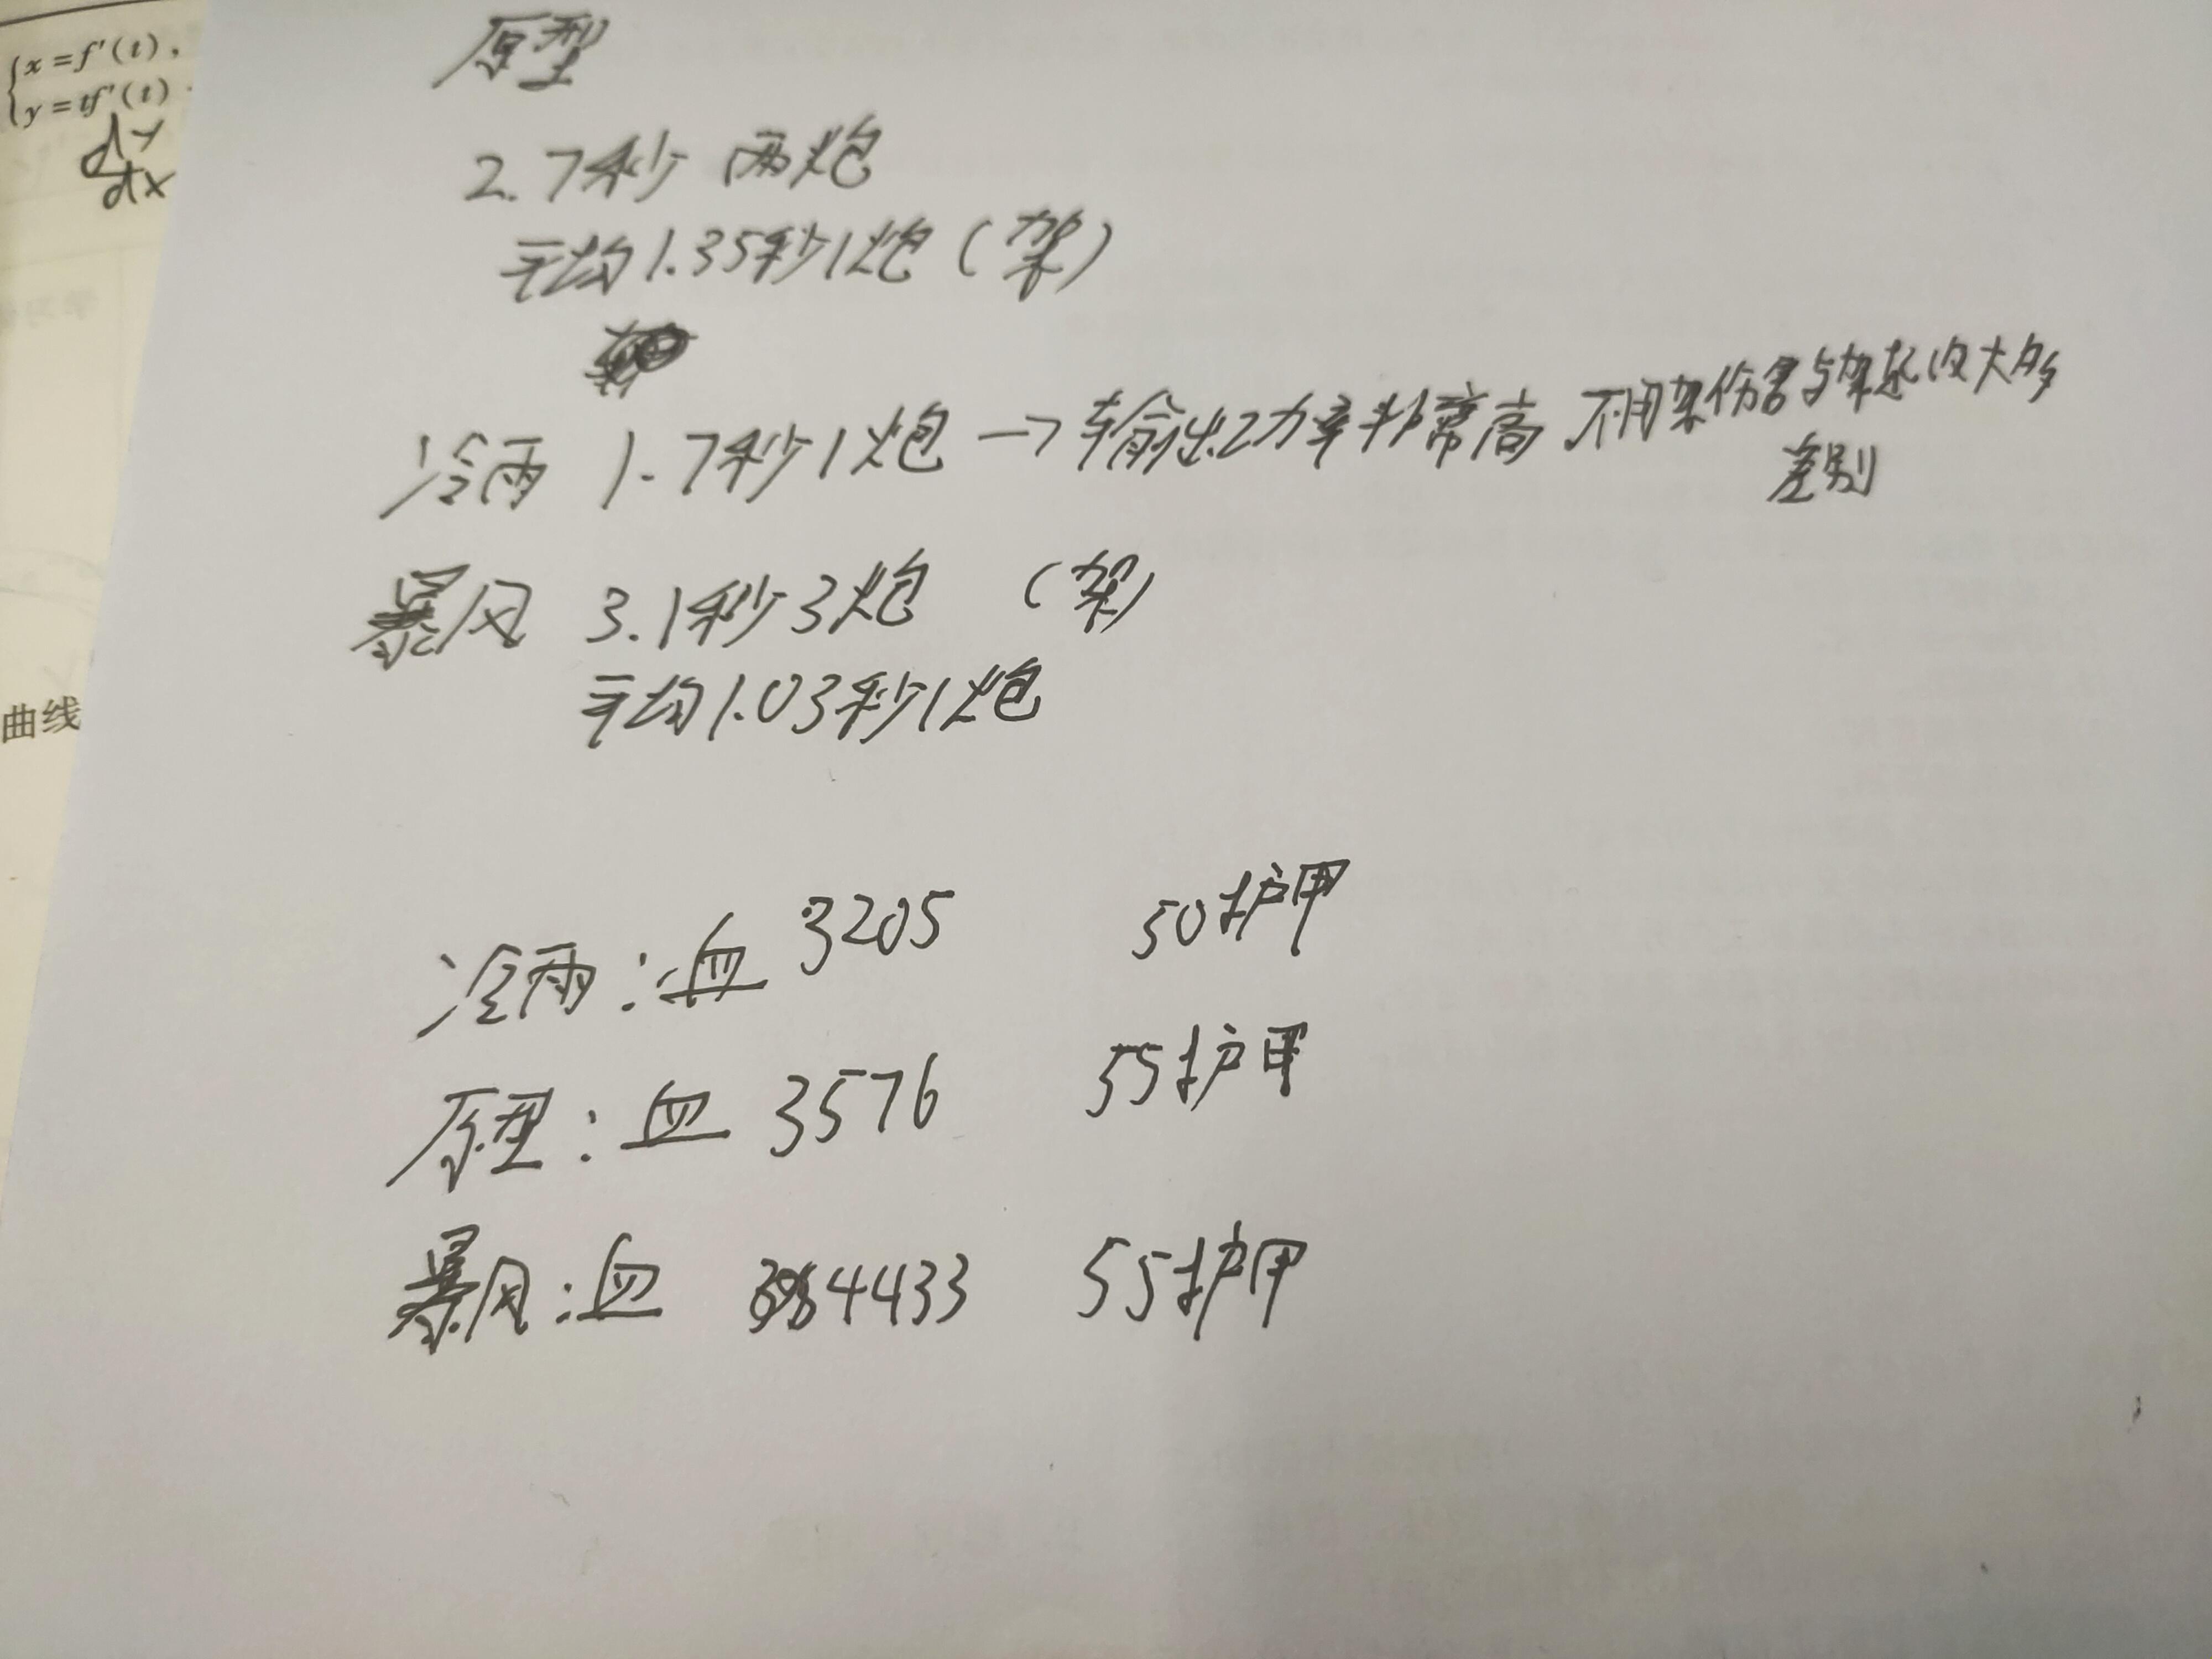 x=f'(t),
y=tf'(t).
dy
dx
曲线
原型
2.7秒 两炮
平均1.35秒1炮(架)
冷雨 1.7秒1炮→输出功率非常高 不用架伤害与架起没大多
差别
暴风 3.1秒3炮 (架)
平均1.03秒1炮
冷雨:血 3205 50护甲
原型:血 3576 55护甲
暴风:血 4433 55护甲